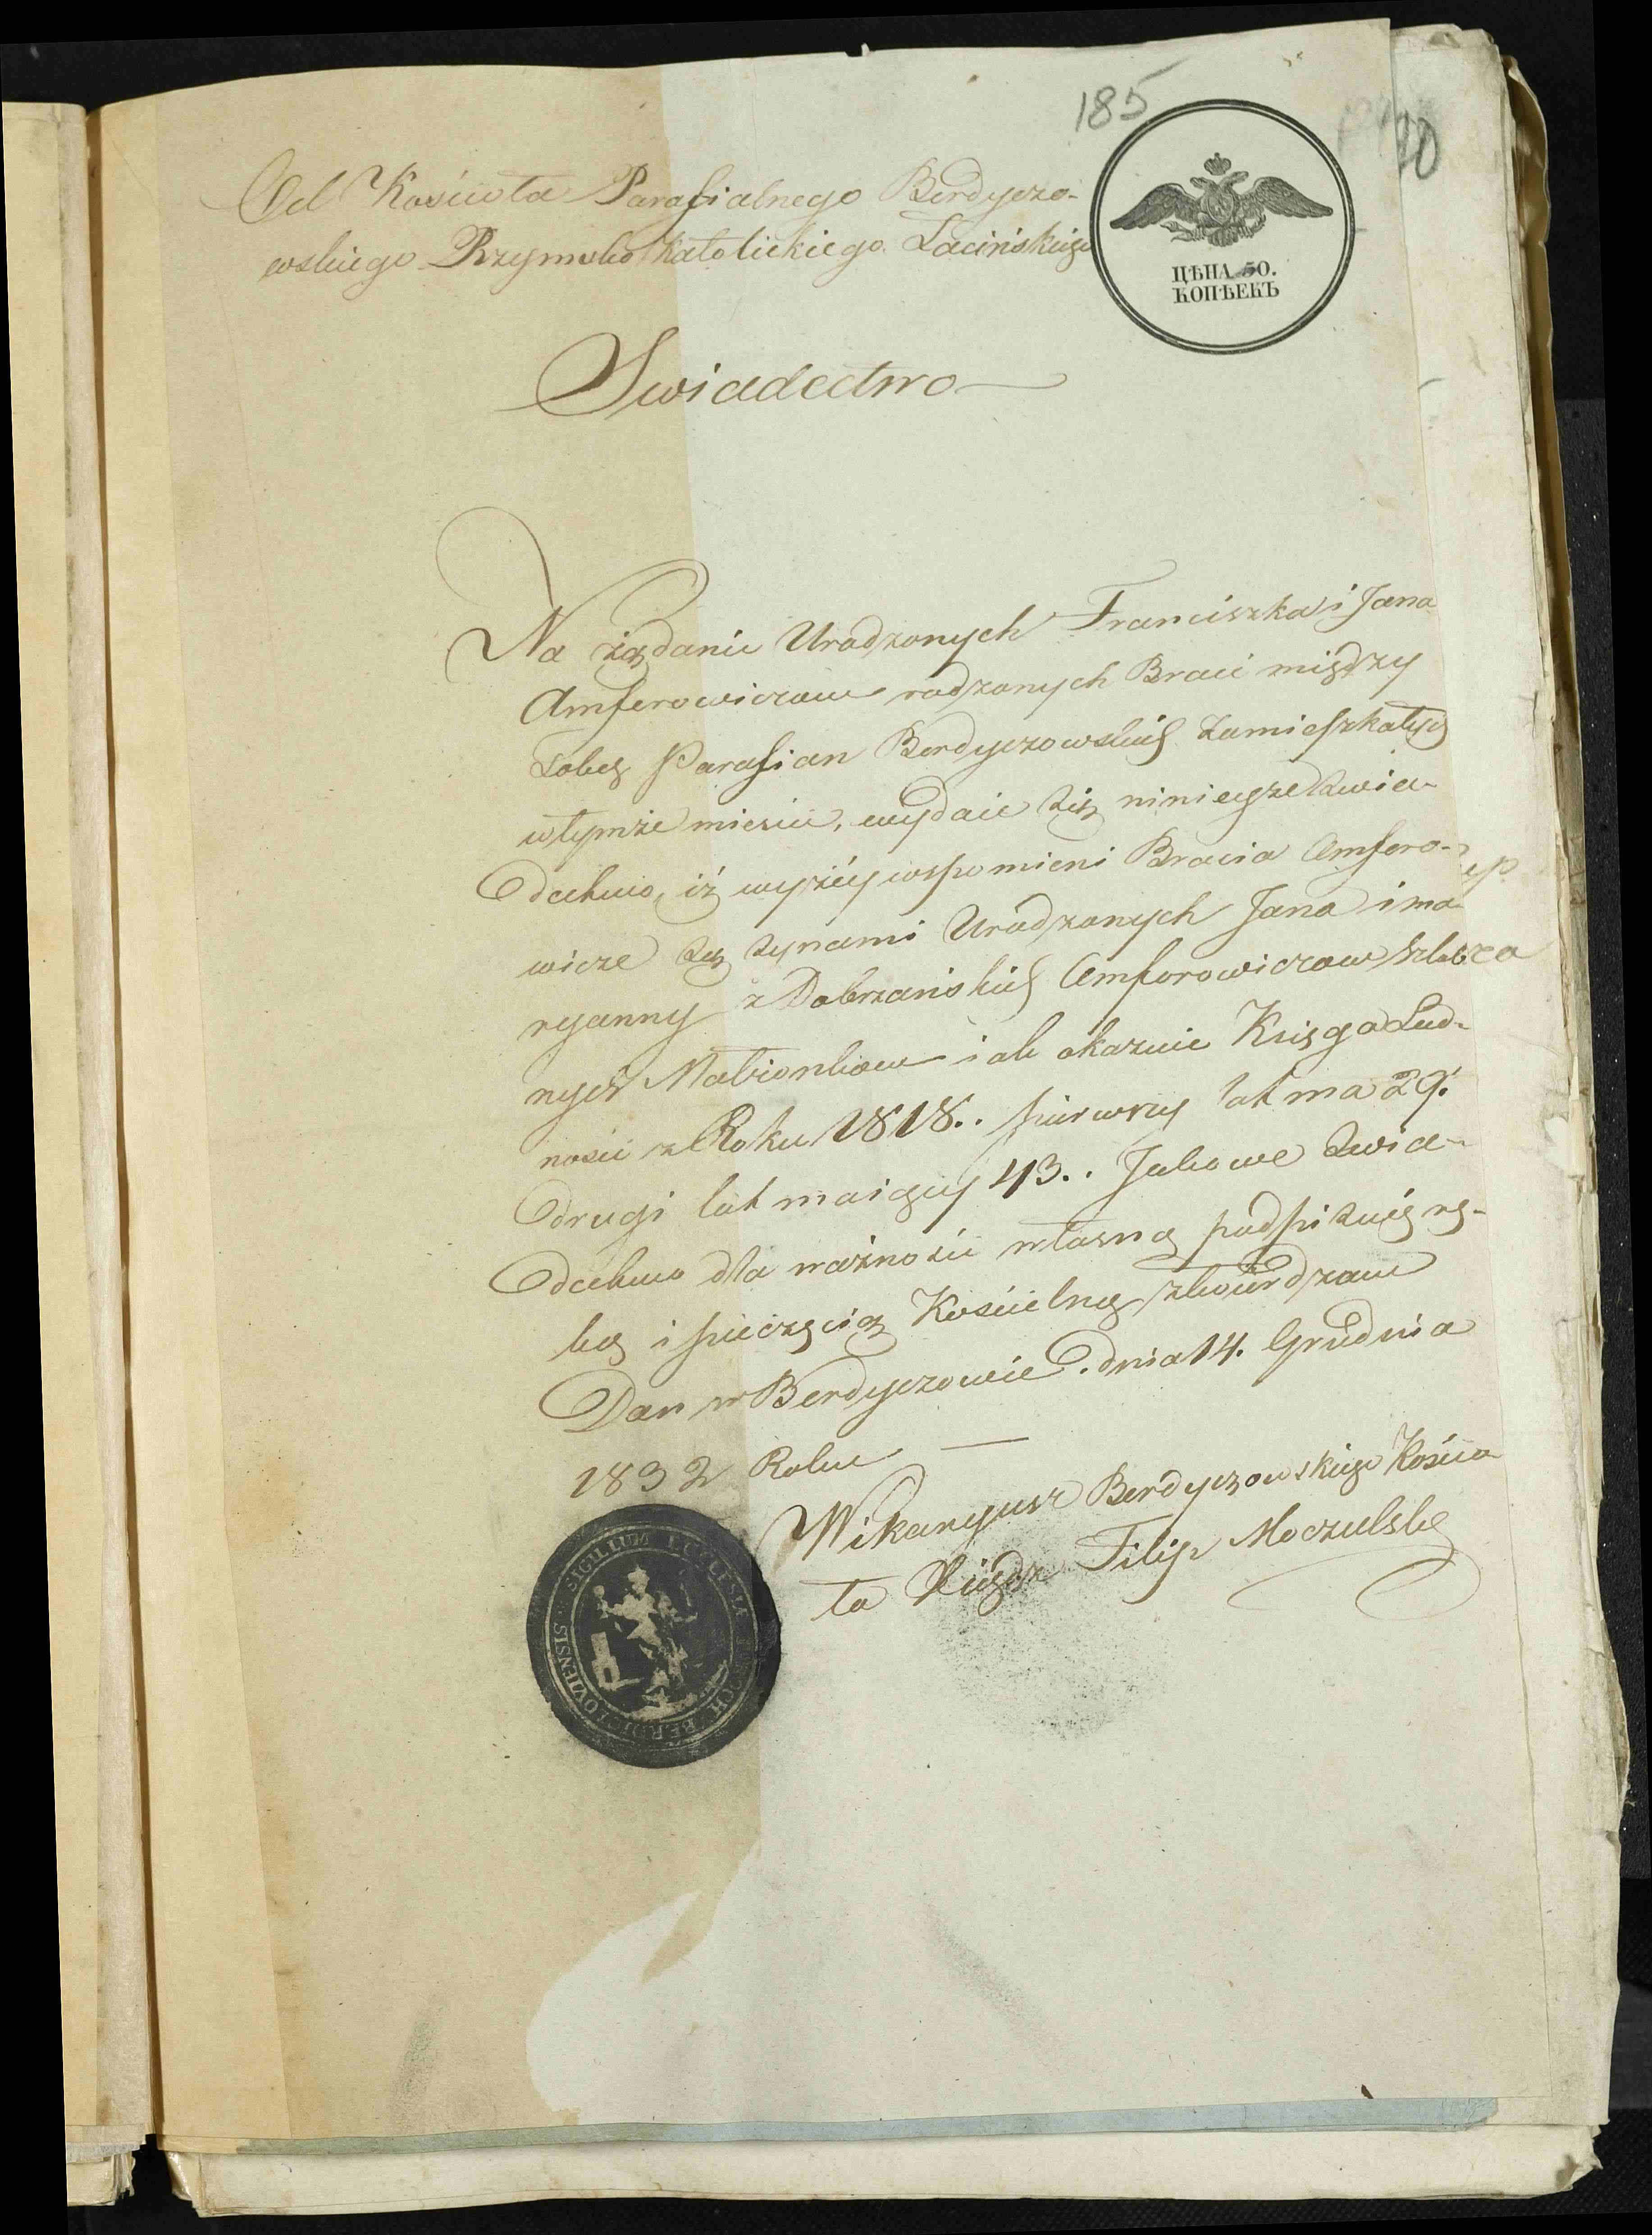 185
20
Od Kościoła Parafialnego Berdyczo-
wskiego Rzymsko Katolickiego Łacińskiego
ЦѢНА 50.
КОПѢЕКЪ
Swiadectwo
Na żądanie Urodzonych Franciszka i Jana
Amforowiczow rodzonych Braci między
Sobą Parafian Berdyczowskich Zamieszkałych
w tymże mieście, wydaie się ninieysze Swia-
dectwo, iż wyżéy wspomieni Bracia Amforo-
wicze są Synami Urodzonych Jana i Ma-
ryanny z Dobrzańskich Amforowiczow szlubzo
nych Małżonkow iak okazuie Księga Lud-
ności z Roku 1818.. pierwszy lat ma 29.
drugi lat maiący 43.. Jakowe Swia-
dectwo dla ważności własną podpisuię rę-
ką i pieczęcią Kościelną ztwierdzam
Dan w Berdyczowie. dnia 14. Grudnia
1832 Roku
Wikaryusz Berdyczowskiego Kościo
ła Xiądz Filip Moczulski
SIGILLUM ECCLESIÆ PAROCH BERDICZOVIENSIS